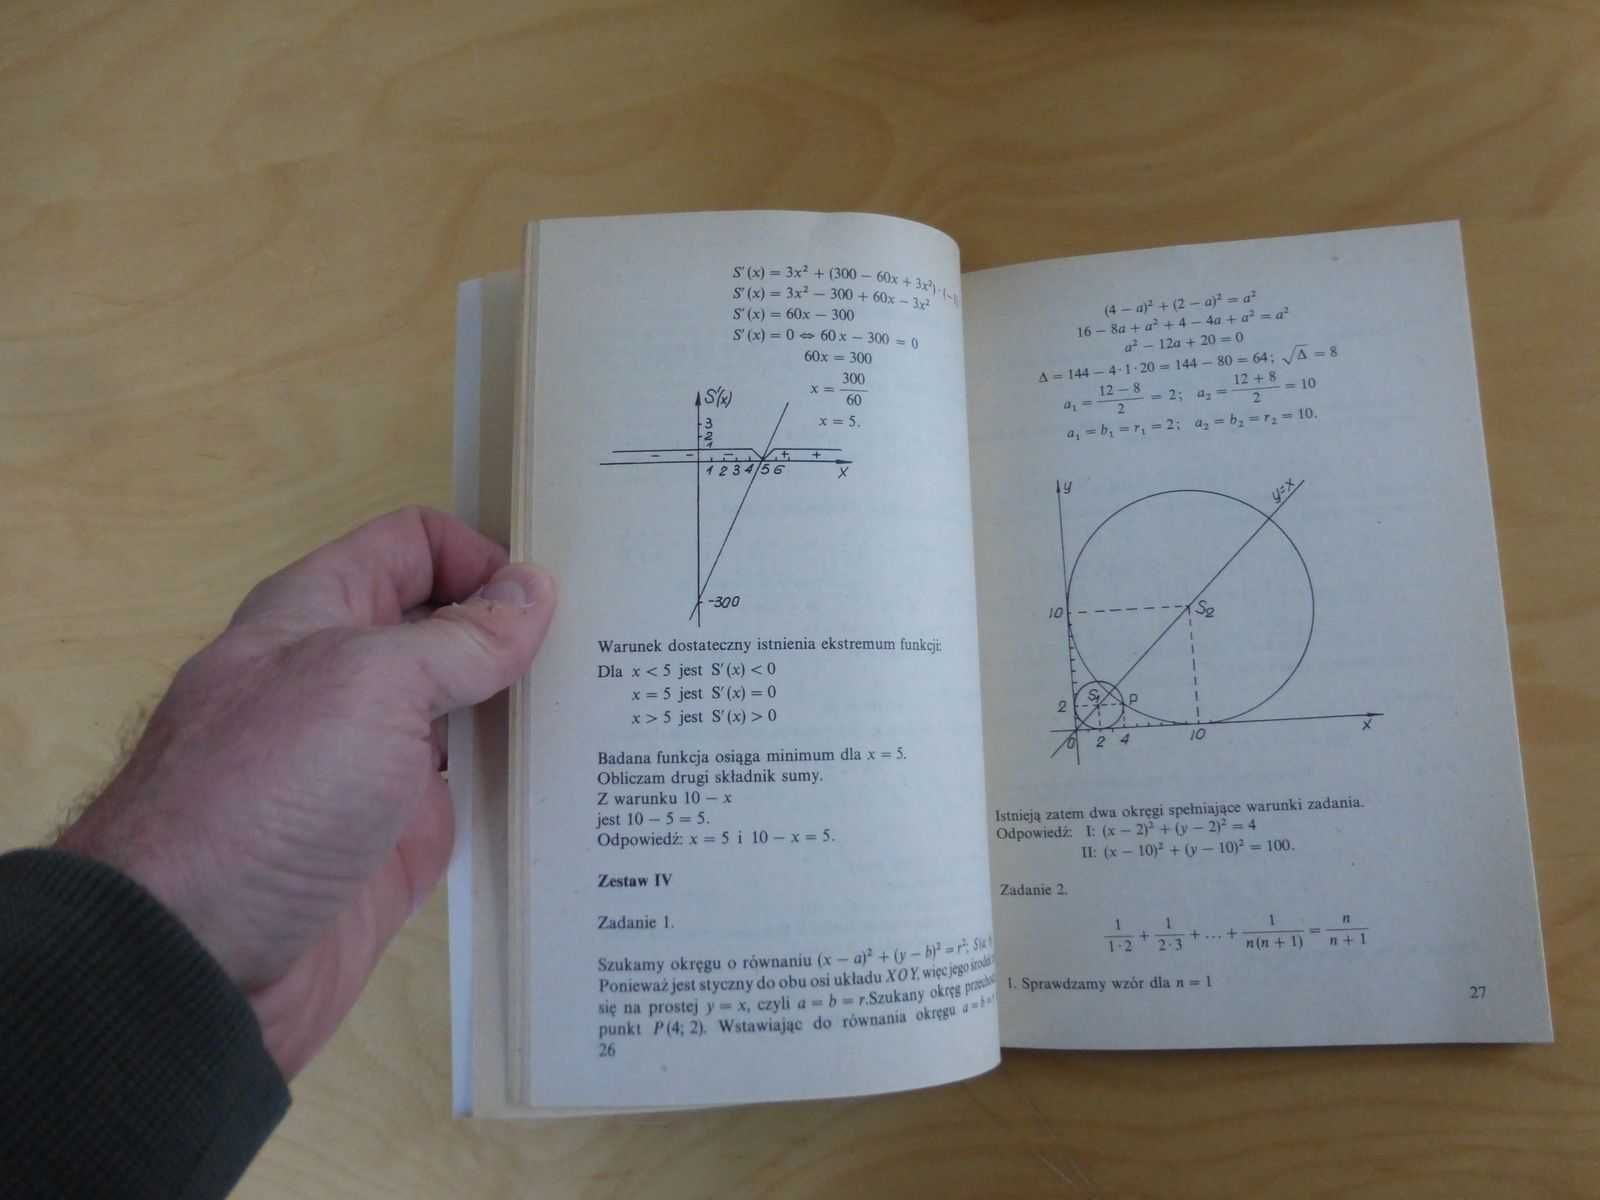 S′(x) = 3x² + (300 − 60x + 3x²)·(−1)
S′(x) = 3x² − 300 + 60x − 3x²
S′(x) = 60x − 300
S′(x) = 0 ⇔ 60x − 300 = 0
60x = 300
x = 300/60
x = 5.
S′(x)
3
2
1
− − − + +
1 2 3 4 5 6 x
-300
Warunek dostateczny istnienia ekstremum funkcji:
Dla x < 5 jest S′(x) < 0
x = 5 jest S′(x) = 0
x > 5 jest S′(x) > 0
Badana funkcja osiąga minimum dla x = 5.
Obliczam drugi składnik sumy.
Z warunku 10 − x
jest 10 − 5 = 5.
Odpowiedź: x = 5 i 10 − x = 5.
Zestaw IV
Zadanie 1.
Szukamy okręgu o równaniu (x − a)² + (y − b)² = r²;
Ponieważ jest styczny do obu osi układu XOY, więc jego
się na prostej y = x, czyli a = b = r. Szukany okręg
punkt P(4; 2). Wstawiając do równania okręgu a = b =
26
(4 − a)² + (2 − a)² = a²
16 − 8a + a² + 4 − 4a + a² = a²
a² − 12a + 20 = 0
Δ = 144 − 4·1·20 = 144 − 80 = 64; √Δ = 8
a₁ = (12 − 8)/2 = 2; a₂ = (12 + 8)/2 = 10
a₁ = b₁ = r₁ = 2; a₂ = b₂ = r₂ = 10.
y
y=x
10
S₂
S₁ P
2
0 2 4 10 x
Istnieją zatem dwa okręgi spełniające warunki zadania.
Odpowiedź: I: (x − 2)² + (y − 2)² = 4
II: (x − 10)² + (y − 10)² = 100.
Zadanie 2.
1/(1·2) + 1/(2·3) + ... + 1/(n(n + 1)) = n/(n + 1)
1. Sprawdzamy wzór dla n = 1
27